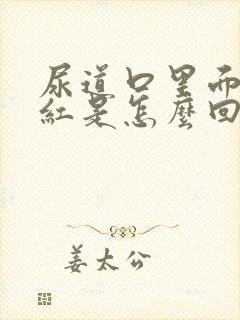 尿道口里面
紅是怎麼回
姜太公